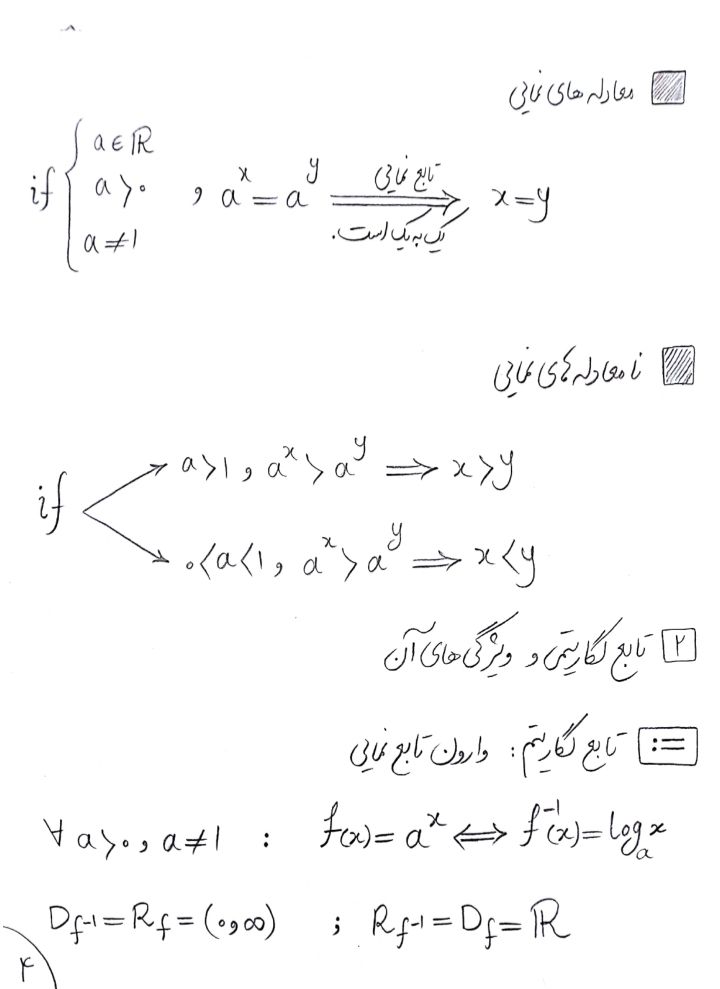 معادله های نمایی
if { a ∈ ℝ
a > ۰ , a^x = a^y ⟹ x = y
a ≠ 1
تابع نمایی
یک به یک است.
نامعادله های نمایی
if
a > 1 , a^x > a^y ⟹ x > y
۰ < a < 1 , a^x > a^y ⟹ x < y
۲ تابع لگاریتمی و ویژگی های آن
:= تابع لگاریتم: وارون تابع نمایی
∀ a > ۰ , a ≠ 1 : f(x) = a^x ⟺ f^{-1}(x) = log_a x
D_{f^{-1}} = R_f = (۰, ∞) ; R_{f^{-1}} = D_f = ℝ
۴